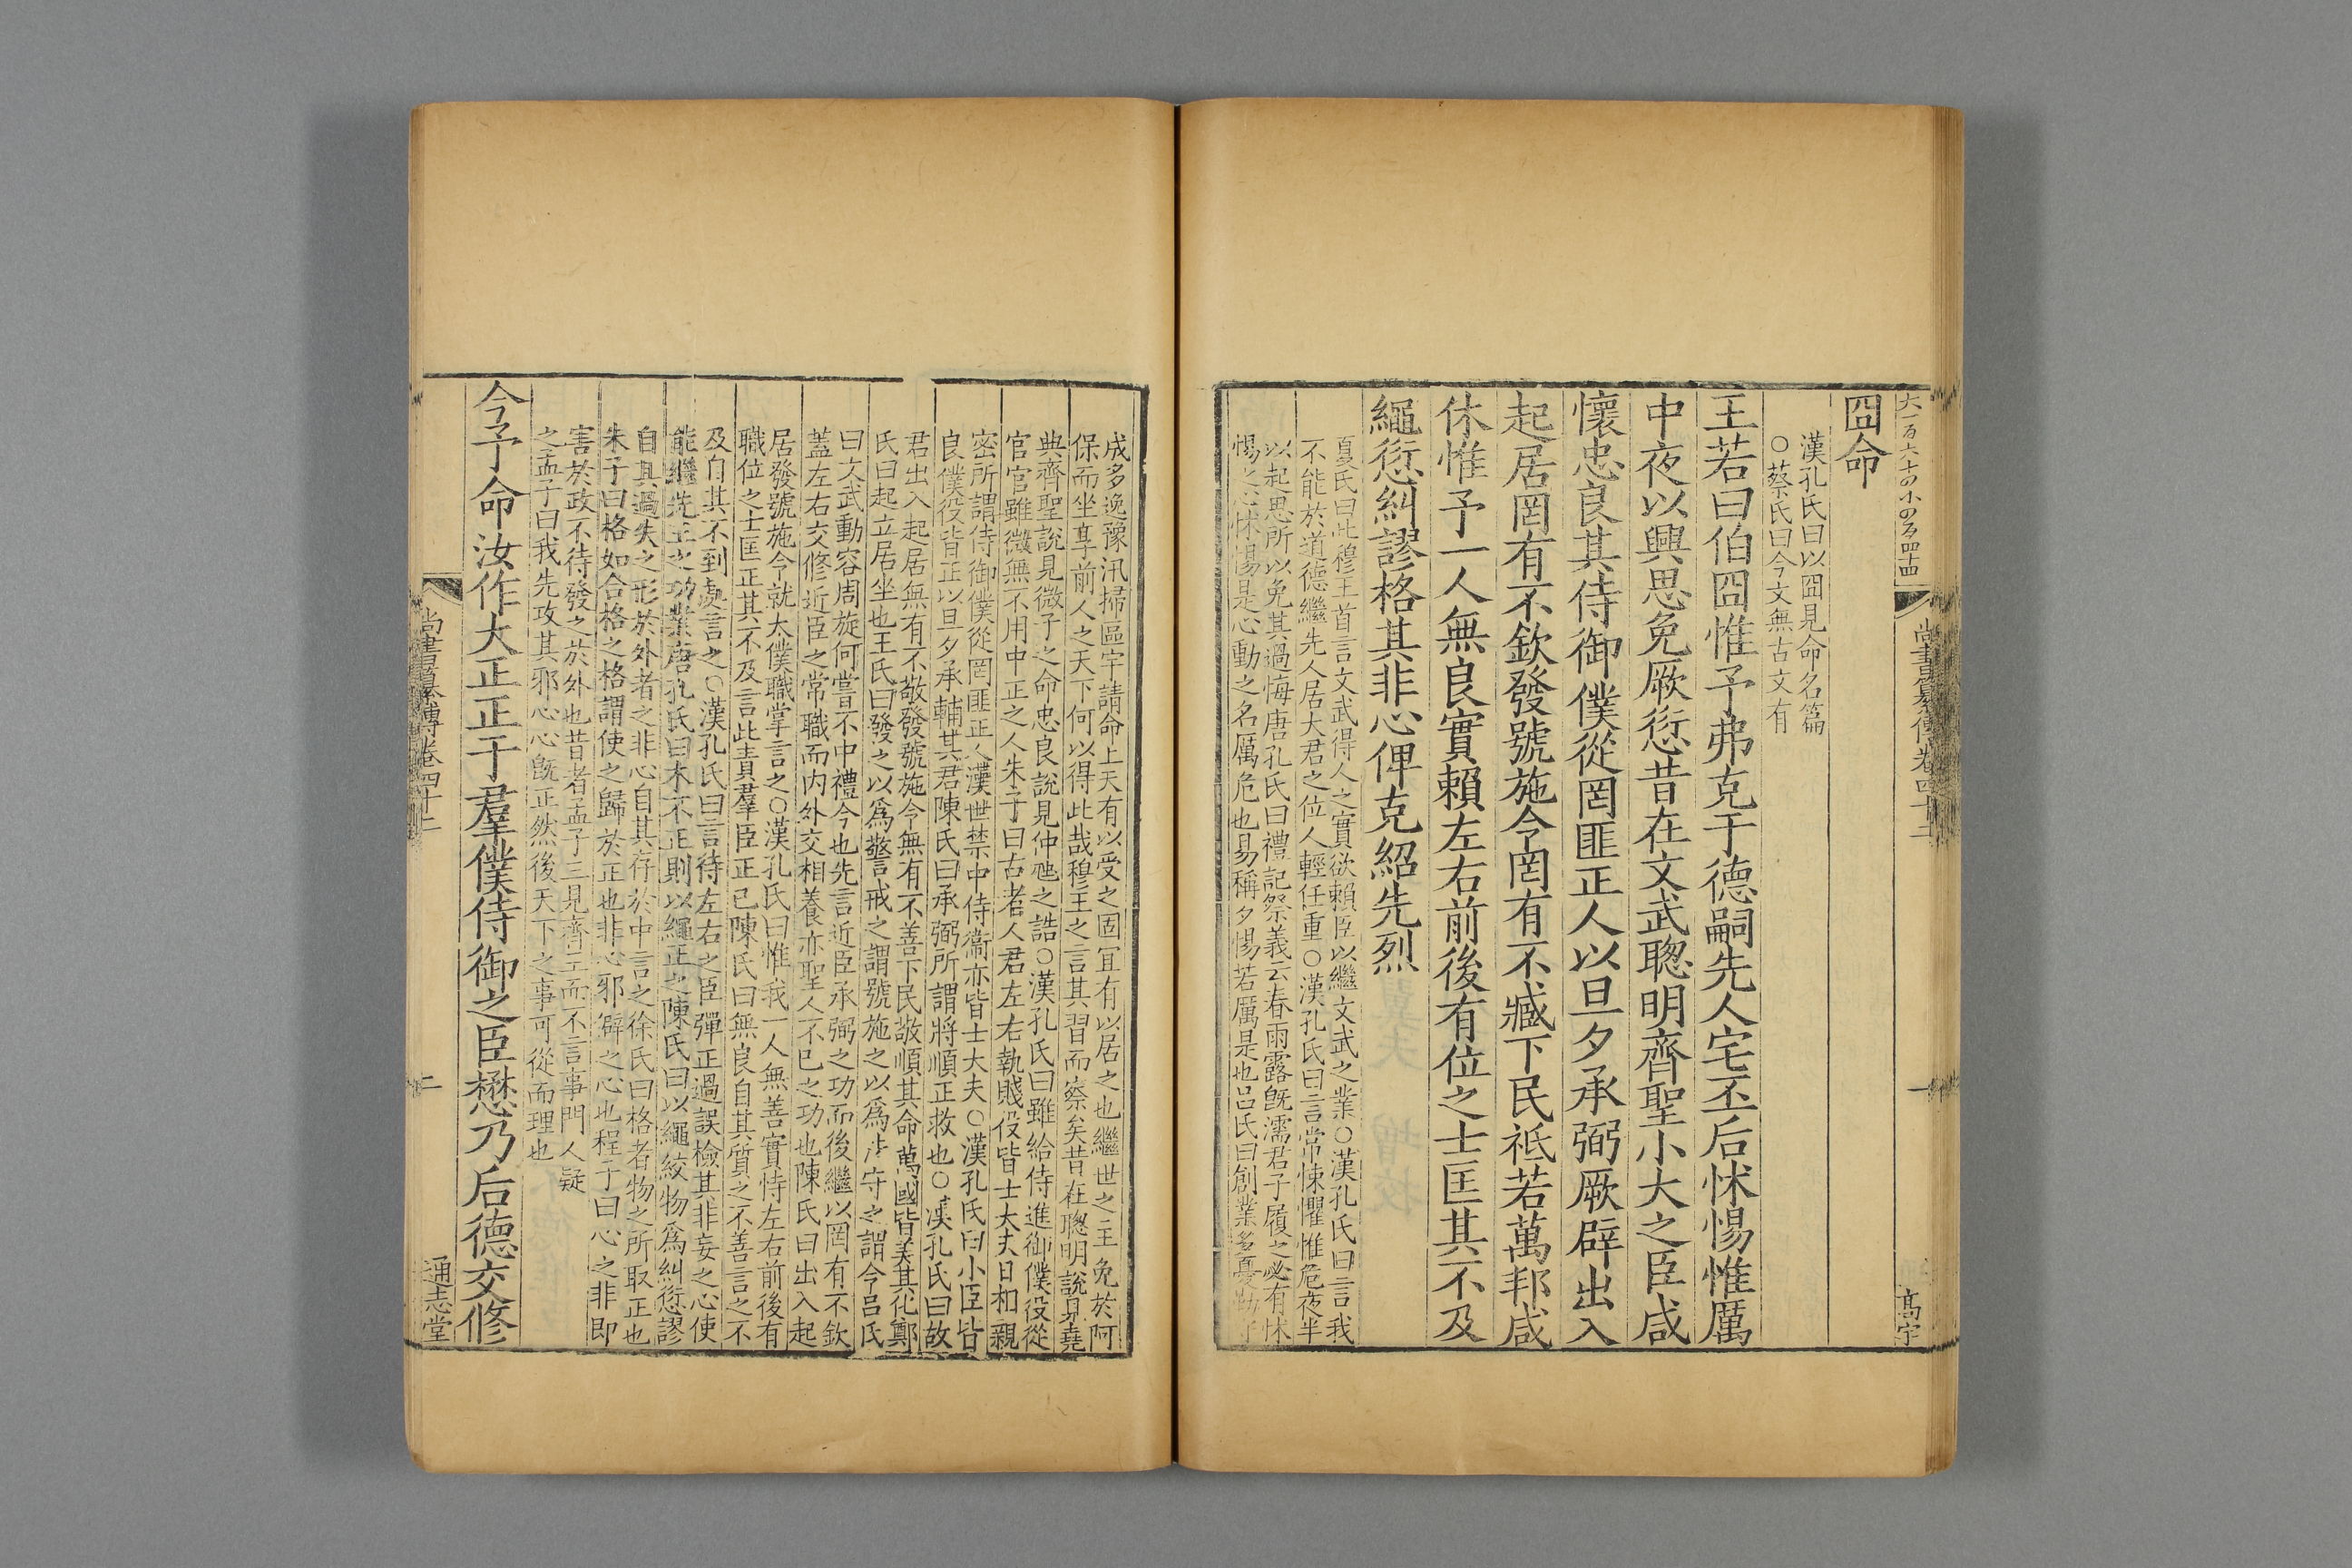 大一百六十四小四百四十四
尚書纂傳卷四十二
一
高宇
囧命
漢孔氏曰以囧見命名篇
○蔡氏曰今文無古文有
王若曰伯囧惟予弗克于德嗣先人宅丕后怵惕惟厲
中夜以興思免厥愆昔在文武聰明齊聖小大之臣咸
懷忠良其侍御僕從罔匪正人以旦夕承弼厥辟出入
起居罔有不欽發號施令罔有不臧下民祗若萬邦咸
休惟予一人無良實賴左右前後有位之士匡其不及
繩愆糾謬格其非心俾克紹先烈
夏氏曰此穆王首言文武得人之實欲賴臣以繼文武之業○漢孔氏曰言我
不能於道德繼先人居大君之位人輕任重○漢孔氏曰言常悚懼惟危夜半
以起思所以免其過悔唐孔氏曰禮記祭義云春雨露旣濡君子履之必有怵
惕之心怵惕是心動之名厲危也易稱夕惕若厲是也呂氏曰創業多憂勤守
成多逸豫汛掃區宇請命上天有以受之固冝有以居之也繼世之主免於阿
保而坐享前人之天下何以得此哉穆王之言其習而察矣昔在聰明說見堯
典齊聖說見微子之命忠良說見仲虺之誥○漢孔氏曰雖給侍進御僕役從
官官雖微無不用中正之人朱子曰古者人君左右執賤役皆士大夫日相親
密所謂侍御僕從罔匪正人漢世禁中侍衞亦皆士大夫○漢孔氏曰小臣皆
良僕役皆正以旦夕承輔其君陳氏曰承弼所謂將順正救也○漢孔氏曰故
君出入起居無有不敬發號施令無有不善下民敬順其命萬國皆美其化鄭
氏曰起立居坐也王氏曰發之以爲警戒之謂號施之以爲法守之謂令呂氏
曰文武動容周旋何嘗不中禮今也先言近臣承弼之功而後繼以罔有不欽
蓋左右交修近臣之常職而内外交相養亦聖人不已之功也陳氏曰出入起
居發號施令就太僕職掌言之○漢孔氏曰惟我一人無善實恃左右前後有
職位之士匡正其不及言此責羣臣正已陳氏曰無良自其質之不善言之不
及自其不到處言之○漢孔氏曰言侍左右之臣彈正過誤檢其非妄之心使
能繼先王之功業唐孔氏曰木不正則以繩正之陳氏曰以繩絞物爲糾愆謬
自其過失之形於外者之非心自其存於中言之徐氏曰格者物之所取正也
朱子曰格如合格之格謂使之歸於正也非心邪僻之心也程子曰心之非即
害於政不待發之於外也昔者孟子三見齊王而不言事門人疑
之孟子曰我先攻其邪心心旣正然後天下之事可從而理也
今予命汝作大正正于羣僕侍御之臣懋乃后德交修
尚書纂傳卷四十二
二
通志堂